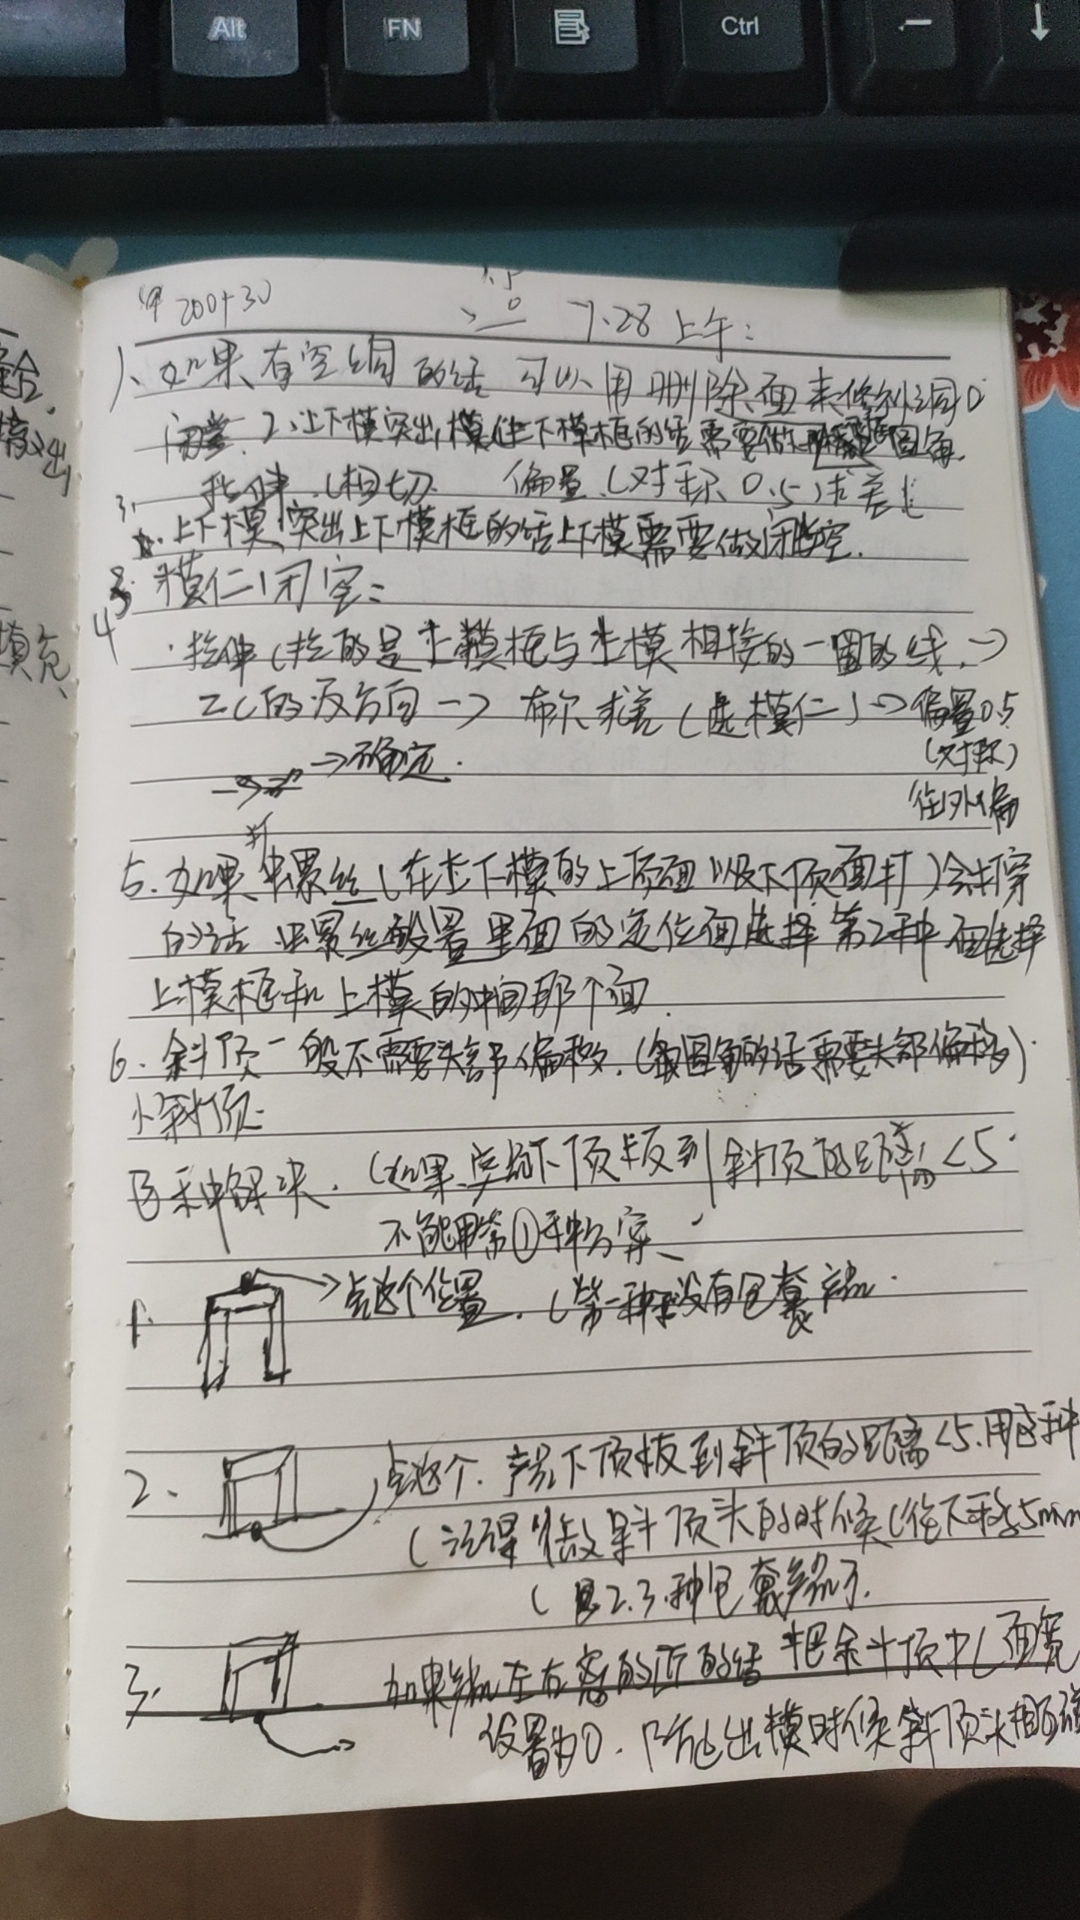 Alt
FN
Ctrl
200+30
7.28 上午:
1、如果有空洞的话 可以用删除面来修补洞口
2、上下模突出模仁下模框的话需要做 圆角
拉伸.(相切 偏置.(对称0.5)求差
3.
上下模突出上下模框的话上下模需要做闭空.
4
模仁闭空:
·拉伸(拉的是上模框与上模相接的一圈的线.→
ZC的反方向→ 布尔求差(选模仁)→偏置0.5
(对称)
往外偏
→确定.
打
5.如果 螺丝(在上下模的上顶面以及下顶面打)会打穿
的话 螺丝设置里面的定位面选择第2种 面选择
上模框和上模的中间那个面.
6.斜顶一般不需要头部偏移.(做圆角的话需要头部偏移)
小斜顶:
3种解决.(如果产品下顶板到斜顶的距离<5.
不能用第①种方案
1. 点这个位置.(第一种没有包裹产品.
2. 点这个.产品下顶板到斜顶的距离<5.用 种
(记得做斜顶头的时候(往下移5mm
( 2.3.种包裹产品了.
3. 如果产品左右 的话 把斜顶 面宽
设置为0.防止出模时候斜顶头相